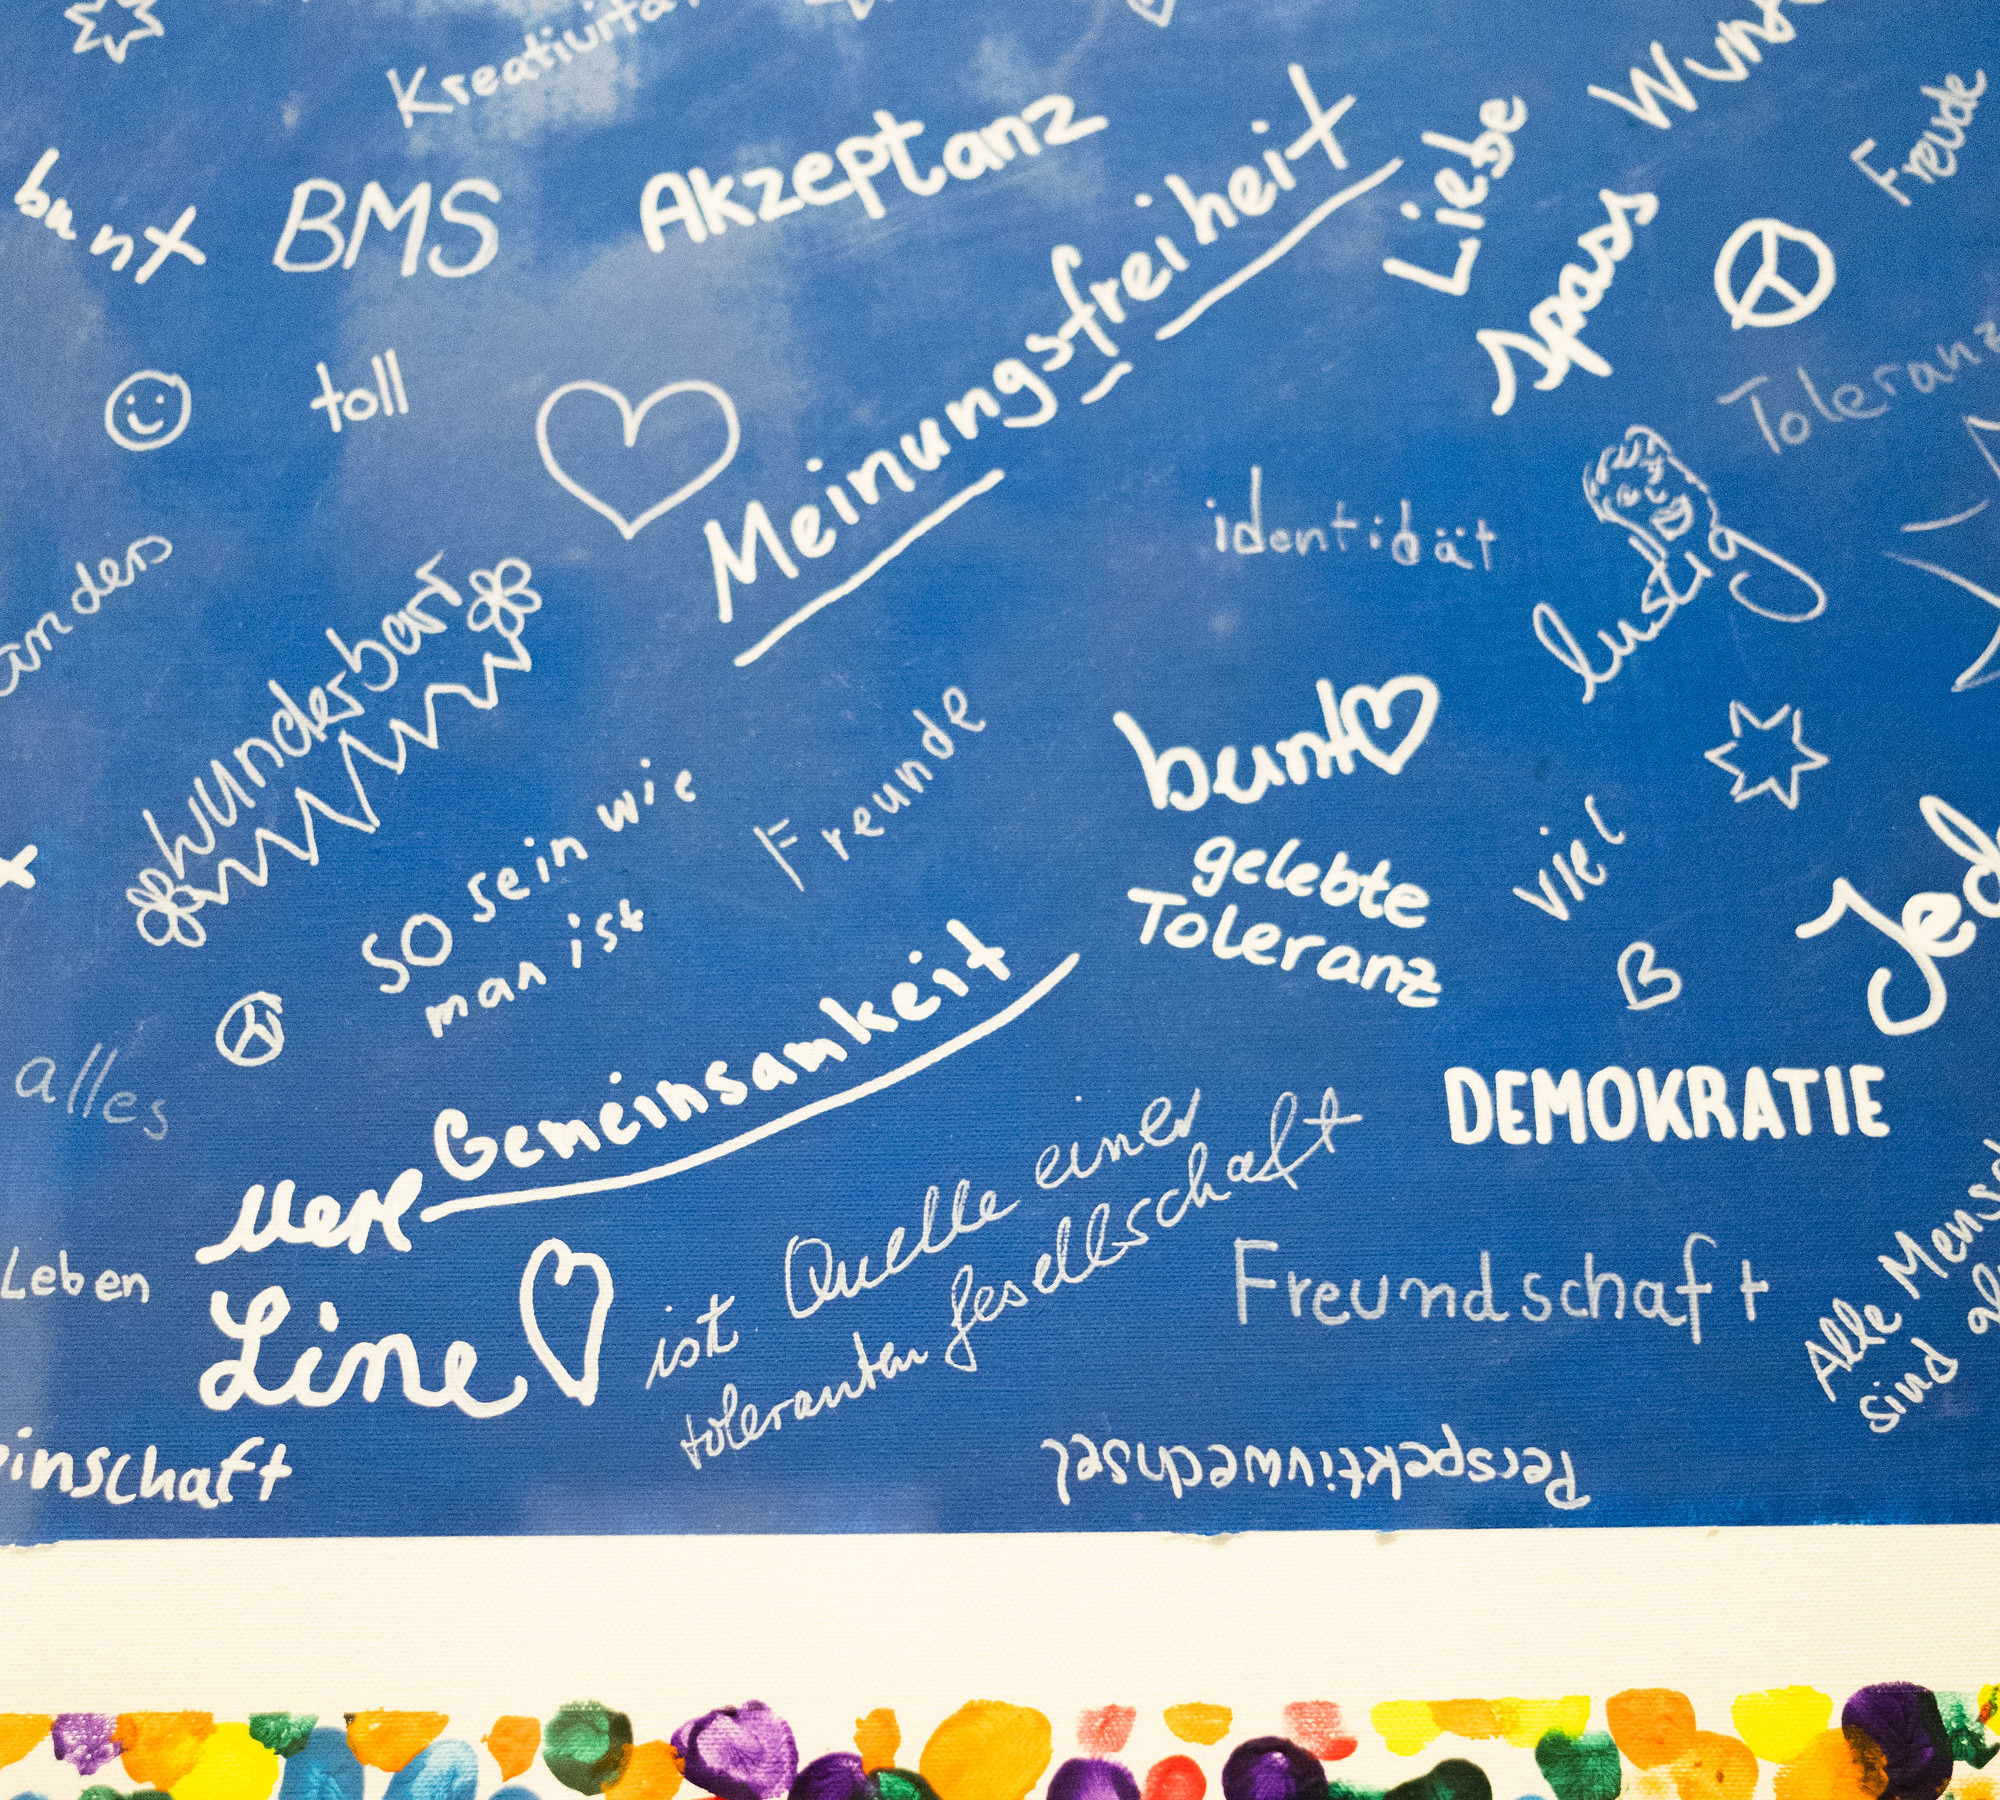 Kreativität
bunt
BMS
Akzeptanz
Meinungsfreiheit
Liebe
Spass
Freude
toll
Toleranz
identität
lustig
anders
wunderbar
so sein wie
man ist
Freunde
bunt
gelebte
Toleranz
viel
Jed
alles
Gemeinsamkeit
DEMOKRATIE
Leben
Line
ist Quelle einer
toleranten Gesellschaft
Freundschaft
Alle Mensch
sind
einschaft
Perspektivwechsel